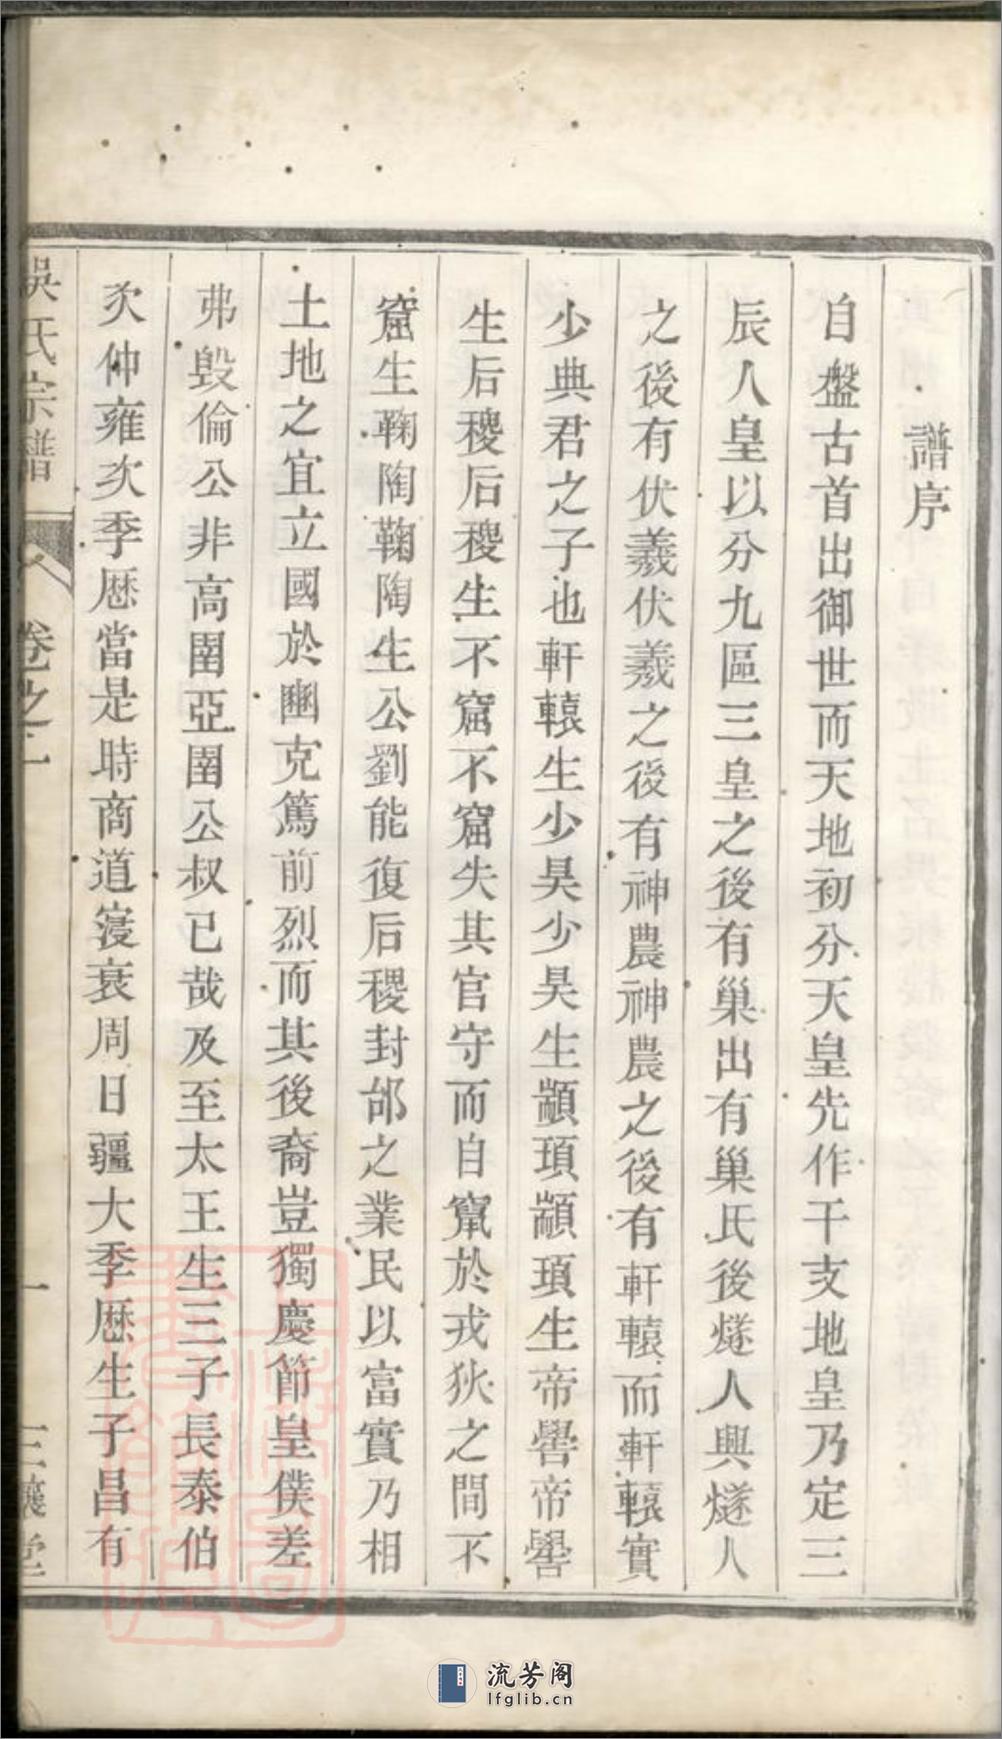 譜序
自盤古首出御世而天地初分天皇先作干支地皇乃定三
辰人皇以分九區三皇之後有巢出有巢氏後燧人興燧人
之後有伏羲伏羲之後有神農神農之後有軒轅而軒轅實
少典君之子也軒轅生少昊少昊生顓頊顓頊生帝嚳帝嚳
生后稷后稷生不窋不窋失其官守而自竄於戎狄之間不
窋生鞠陶鞠陶生公劉能復后稷封邰之業民以富實乃相
土地之宜立國於豳克篤前烈而其後裔豈獨慶節皇僕差
弗毀倫公非高圉亞圉公叔已哉及至太王生三子長泰伯
次仲雍次季歷當是時商道寖衰周日疆大季歷生子昌有
吳氏宗譜
卷之一
一
三讓堂
流芳阁
lfglib.cn